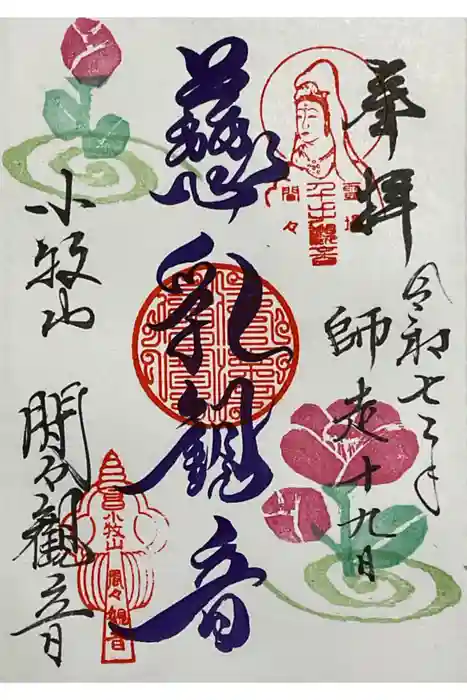 奉拝
令和七年
師走十九日
霊場
千手観音
間々
慈乳観音
小牧山
間々観音
小牧山
間々
観音